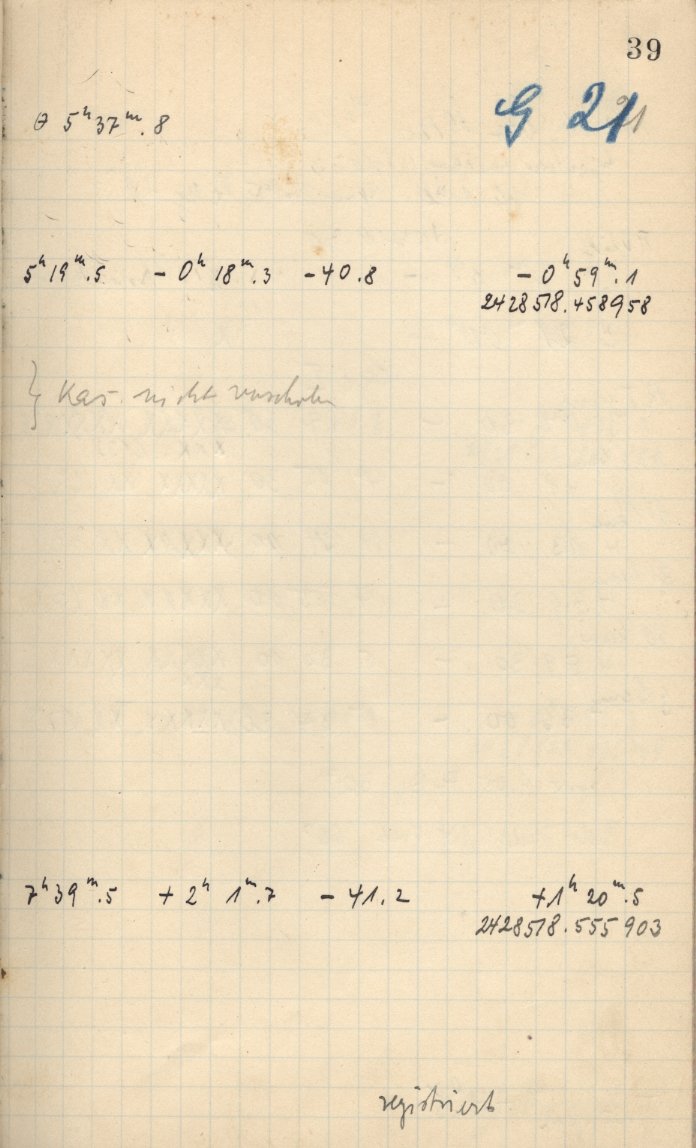 39
G 21
θ 5ʰ37ᵐ.8
5ʰ19ᵐ.5 - 0ʰ 18ᵐ.3 - 40.8 - 0ʰ 59ᵐ.1
2428518.458958
} Kas. nicht verschoben
7ʰ39ᵐ.5 + 2ʰ 1ᵐ.7 - 41.2 + 1ʰ 20ᵐ.5
2428518.555903
registriert